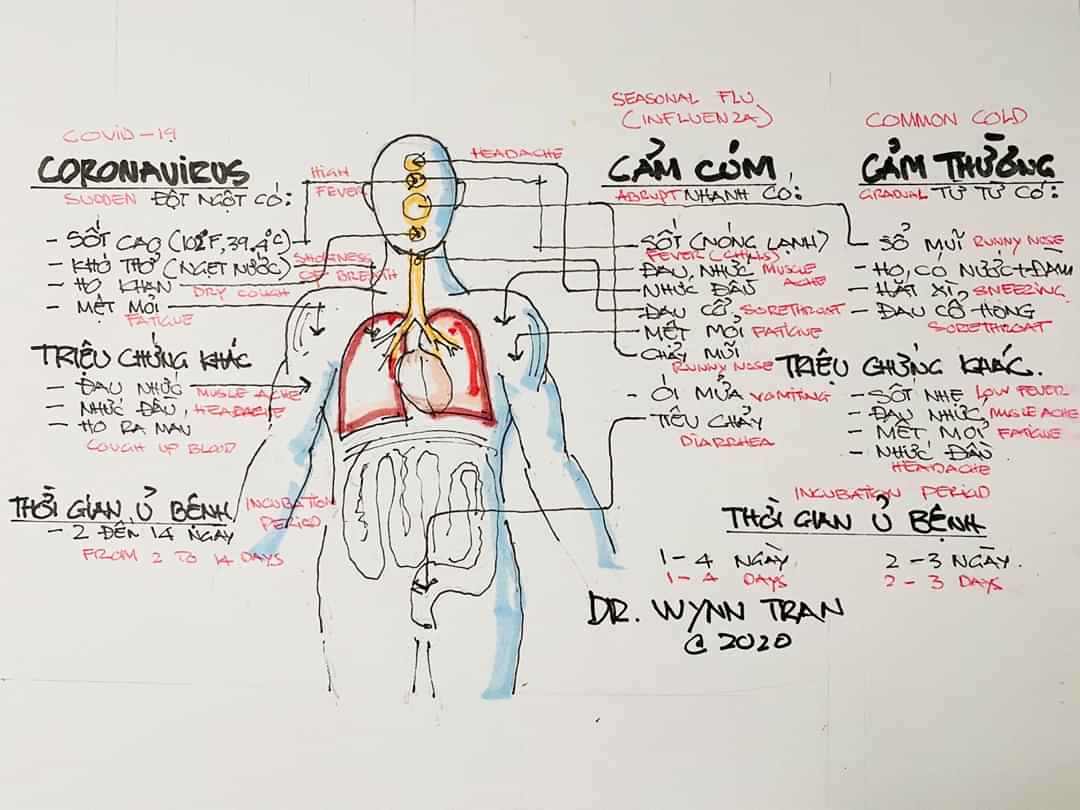 COVID-19
CORONAVIRUS
SUDDEN ĐỘT NGỘT CÓ:
HIGH FEVER
- SỐT CAO (102°F, 39.4°C)
- KHÓ THỞ (NGẸT NƯỚC)
SHORNESS OF BREATH
- HO KHAN
DRY COUGH
- MỆT MỎI
FATIGUE
TRIỆU CHỨNG KHÁC
- ĐAU NHỨC MUSLE ACHE
- NHỨC ĐẦU, HEADACHE
- HO RA MÁU
COUGH UP BLOOD
THỜI GIAN Ủ BỆNH INCUBATION PERIOD
- 2 ĐẾN 14 NGÀY
FROM 2 TO 14 DAYS
HEADACHE
SEASONAL FLU
(INFLUENZA)
CẢM CÚM
ABRUPT NHANH CÓ:
- SỐT (NÓNG LẠNH)
FEVER (CHILLS)
- ĐAU, NHỨC MUSCLE ACHE
- NHỨC ĐẦU
- ĐAU CỔ SORETHROAT
- MỆT MỎI FATIGUE
- CHẢY MŨI
RUNNY NOSE
- ÓI MỬA VOMITING
- TIÊU CHẢY
DIARRHEA
COMMON COLD
CẢM THƯỜNG
GRADUAL TỪ TỪ CÓ:
- SỔ MŨI RUNNY NOSE
- HO, CÓ NƯỚC + ĐÀM
- HẮT XÌ, SNEEZING
- ĐAU CỔ HỌNG
SORETHROAT
TRIỆU CHỨNG KHÁC.
- SỐT NHẸ LOW FEVER
- ĐAU NHỨC MUSLE ACHE
- MỆT MỎI FATIGUE
- NHỨC ĐẦU
HEADACHE
INCUBATION PERIOD
THỜI GIAN Ủ BỆNH
1-4 NGÀY
1-4 DAYS
2-3 NGÀY.
2-3 DAYS
DR. WYNN TRAN
© 2020